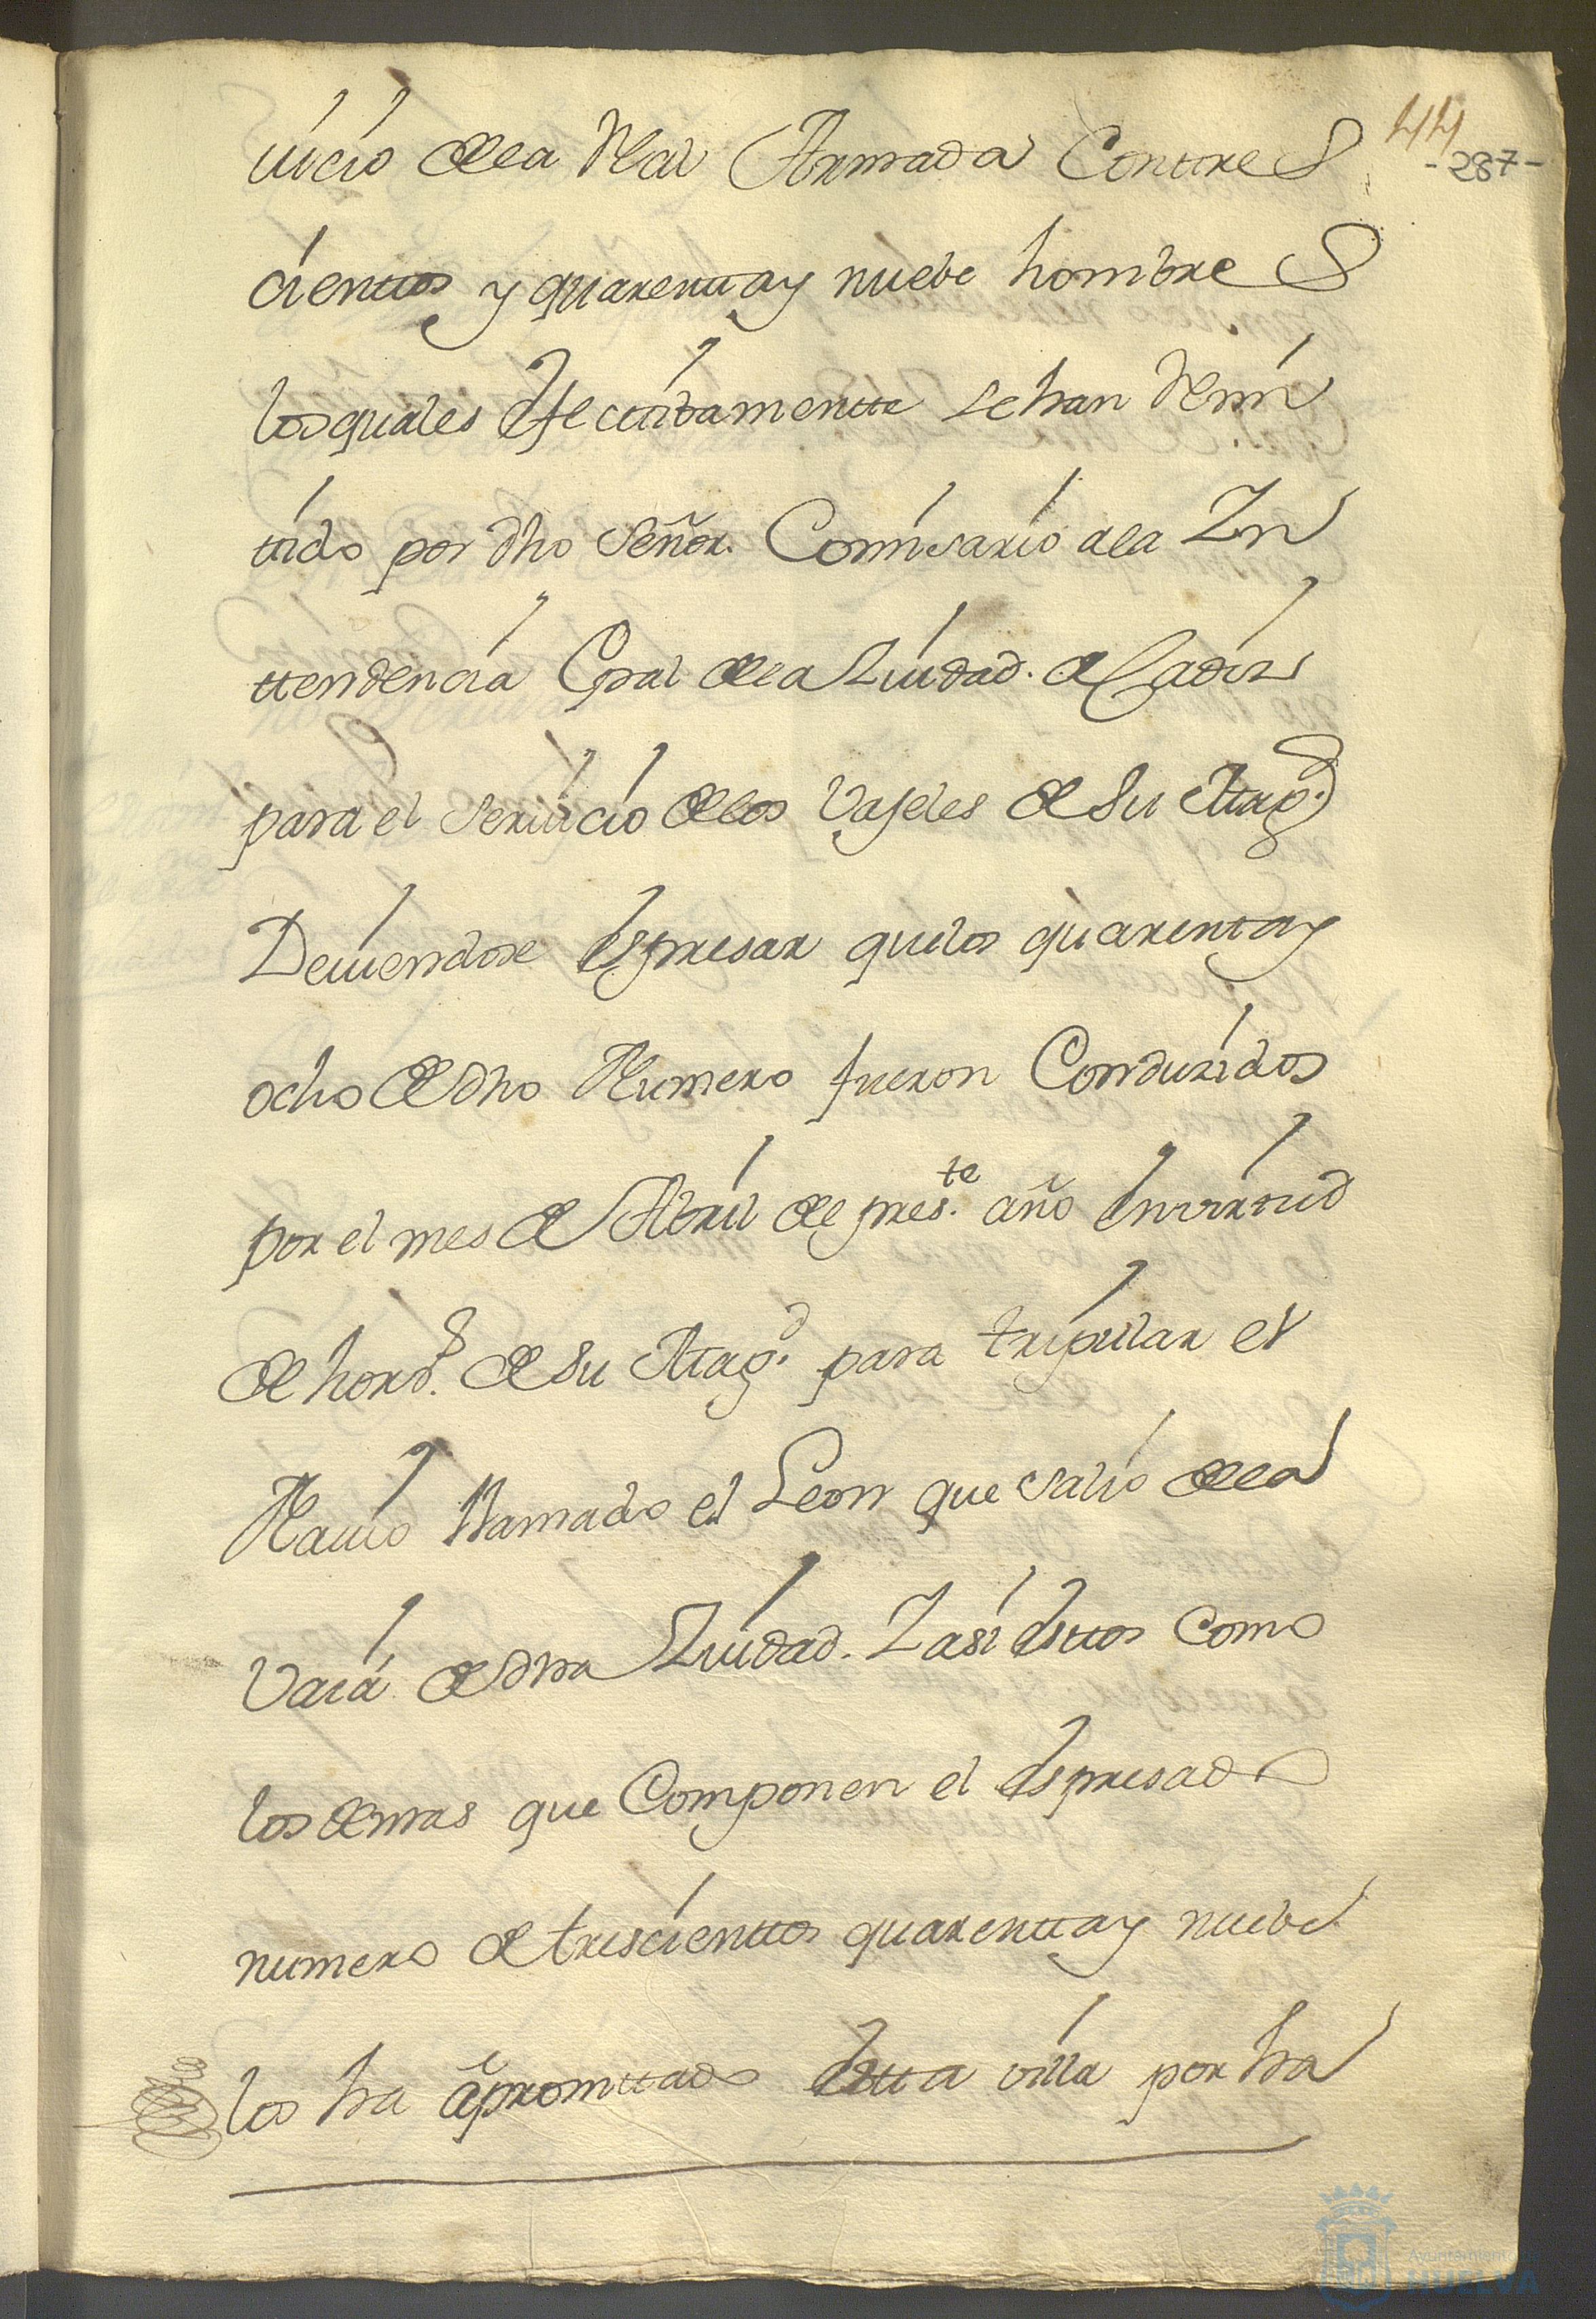 44
-287-
uicio dela Rl. Armada Contres
cienttos y quarentta y nuebe hombres
los quales efecttibamentte se han Remi
tido por dho Señor. Comisario ala Yn
ttendencia Gral dela Ziudad. de Cadiz
para el seruicio delos Vajeles de Su Mag.d
Deuiendose espresar quelos quarenta y
ocho de dho Numero fueron Conduzidos
por el mes de Abril de pres.te año en virtud
de hord.s de Su Mag.d para tripular el
Nauio llamado el Leon que salio dela
Vaia de dha Ziudad. Y asi esttos como
los demas que Componen el espresado
numero de trescienttos quarentta y nuebe
los ha apromttado estta villa por ha
Ayuntamiento de
HUELVA